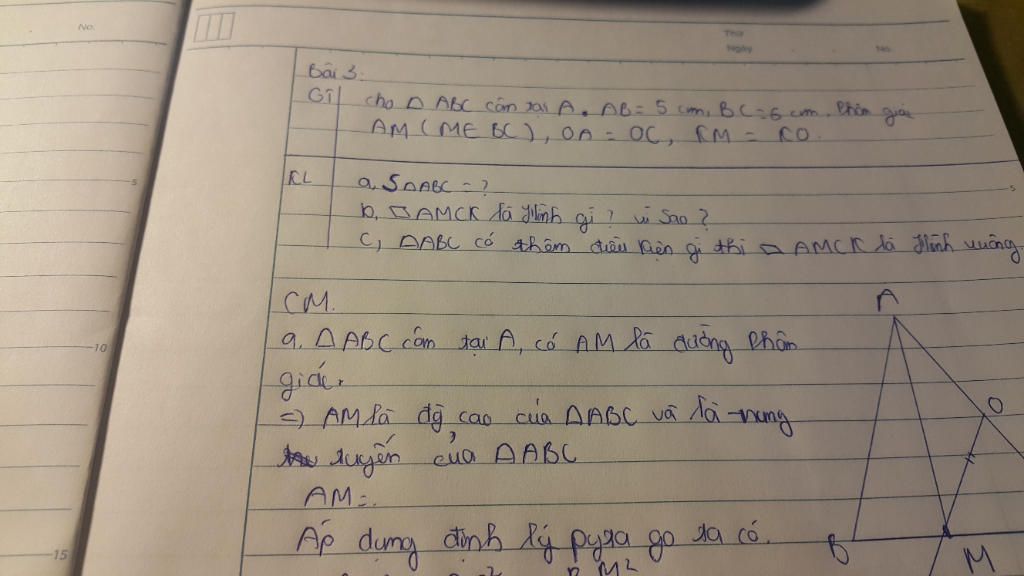 No.
Thứ
Ngày No.
Bài 3:
GT cho △ ABC cân tại A. AB = 5 cm, BC = 6 cm. Phân giác
AM (M∈BC), OA = OC, KM = KO.
KL a, S△ABC = ?
b, ▱AMCK là Hình gì? vì sao?
c, △ABC có thêm điều kiện gì thì ▱ AMCK là Hình vuông
CM.
a, △ABC cân tại A, có AM là đường phân
giác.
=) AM là đg cao của △ABC và là trung
tuyến của △ABC
AM=.
Áp dụng định lý pytago ta có.
A
O
B
M
5
10
15
5